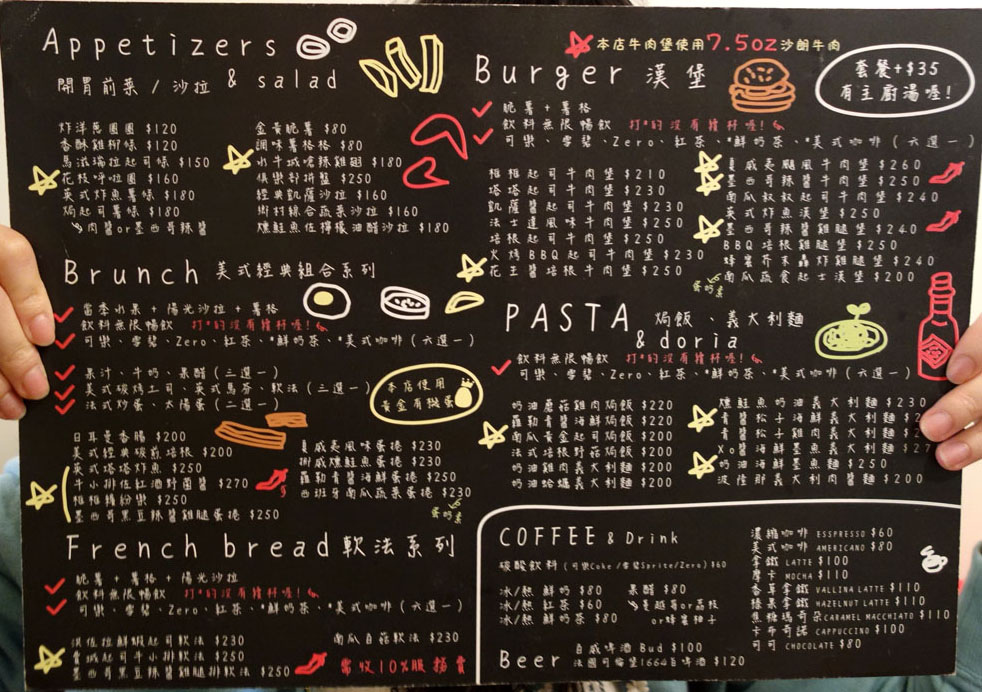 Appetizers
開胃前菜 / 沙拉 & salad
炸洋蔥圈圈 $120
香酥雞柳條 $120
馬滋瑞拉起司條 $150
花枝呼啦圈 $160
英式炸魚薯條 $180
焗起司薯條 $180
肉醬or墨西哥辣醬
金黃脆薯 $80
調味薯格格 $80
水牛城嗆辣雞翅 $180
俱樂部拼盤 $250
經典凱薩沙拉 $160
鄉村綜合蔬菜沙拉 $160
燻鮭魚佐檸檬油醋沙拉 $180
Brunch 美式經典組合系列
當季水果 + 陽光沙拉 + 薯格
飲料無限暢飲 打*的沒有續杯喔!
可樂、雪碧、Zero、紅茶、*鮮奶茶、*美式咖啡 (六選一)
果汁、牛奶、果醋 (三選一)
美式碳烤土司、英式馬芬、軟法 (三選一)
法式炒蛋、太陽蛋 (二選一)
本店使用
黃金有機蛋
日耳曼香腸 $200
美式經典碳煎培根 $200
英式塔塔炸魚 $250
牛小排佐紅酒野菌醬 $270
雞雞繽紛樂 $250
墨西哥黑豆辣醬雞腿蛋捲 $250
夏威夷風味蛋捲 $230
挪威燻鮭魚蛋捲 $230
羅勒青醬海鮮蛋捲 $250
西班牙南瓜蔬菜蛋捲 $230
蛋奶素
French bread 軟法系列
脆薯 + 薯格 + 陽光沙拉
飲料無限暢飲 打*的沒有續杯喔!
可樂、雪碧、Zero、紅茶、*鮮奶茶、*美式咖啡 (六選一)
洪佐拉鮮蝦起司軟法 $230
費城起司牛小排軟法 $250
墨西哥黑豆辣醬雞腿排軟法 $250
南瓜百菇軟法 $230
需收10%服務費
本店牛肉堡使用7.5oz沙朗牛肉
Burger 漢堡
套餐+$35
有主廚湯喔!
脆薯 + 薯格
飲料無限暢飲 打*的沒有續杯喔!
可樂、雪碧、Zero、紅茶、*鮮奶茶、*美式咖啡 (六選一)
雞雞起司牛肉堡 $210
塔塔起司牛肉堡 $230
凱薩醬起司牛肉堡 $230
法士達風味牛肉堡 $250
培根起司牛肉堡 $250
火烤BBQ起司牛肉堡 $230
花生醬培根牛肉堡 $250
夏威夷颶風牛肉堡 $260
墨西哥辣醬牛肉堡 $250
南瓜叔叔起司牛肉堡 $240
英式炸魚漢堡 $250
墨西哥辣醬雞腿堡 $240
BBQ培根雞腿堡 $250
蜂蜜芥末蟲炸雞腿堡 $240
南瓜蔬食起士漢堡 $200
蛋奶素
PASTA 焗飯、義大利麵
& doria
飲料無限暢飲 打*的沒有續杯喔!
可樂、雪碧、Zero、紅茶、*鮮奶茶、*美式咖啡 (六選一)
奶油蘑菇雞肉焗飯 $220
羅勒青醬海鮮焗飯 $220
南瓜黃金起司焗飯 $200
法式培根野菇焗飯 $200
奶油雞肉義大利麵 $200
奶油蛤蠣義大利麵 $200
燻鮭魚奶油義大利麵 $230
青醬松子海鮮義大利麵 $2
青醬松子雞肉義大利麵 $2
Xo醬海鮮墨魚義大利麵 $27
奶油海鮮墨魚麵 $250
波隆那義大利肉醬麵 $200
COFFEE & Drink
碳酸飲料 (可樂Coke/雪碧Sprite/Zero) $60
冰/熱 鮮奶 $80
冰/熱 紅茶 $60
冰/熱 鮮奶茶 $80
果醋 $80
蔓越莓or荔枝
or蜂蜜柚子
Beer 百威啤酒 Bud $100
法國可倫堡1664白啤酒 $120
濃縮咖啡 ESSPRESSO $60
美式咖啡 AMERICANO $80
拿鐵 LATTE $100
摩卡 MOCHA $110
香草拿鐵 VALLINA LATTE $110
榛果拿鐵 HAZELNUT LATTE $110
焦糖瑪奇朵 CARAMEL MACCHIATO $110
卡布奇諾 CAPPUCCINO $100
可可 CHOCOLATE $80